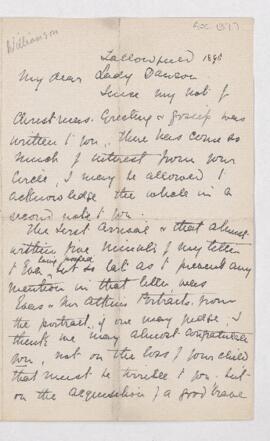 Williamson
Fallowfield 1898
My dear Lady Dawson
Since my note of
Christmas Greeting & gossip was
written to you, there has come so
much of interest from your
circle, I may be allowed to
acknowledge the whole in a
second note to you.
The first arrival & that almost
within five minutes of my letter
to being posted but so late as to prevent any
mention in that letter was
Evas & Mr Atkins Portraits. From
the portrait, if one may judge, I
think we may almost congratulate
you, not on the loss of your child
that must be terrible to you. but
on the acquisition of a good brave